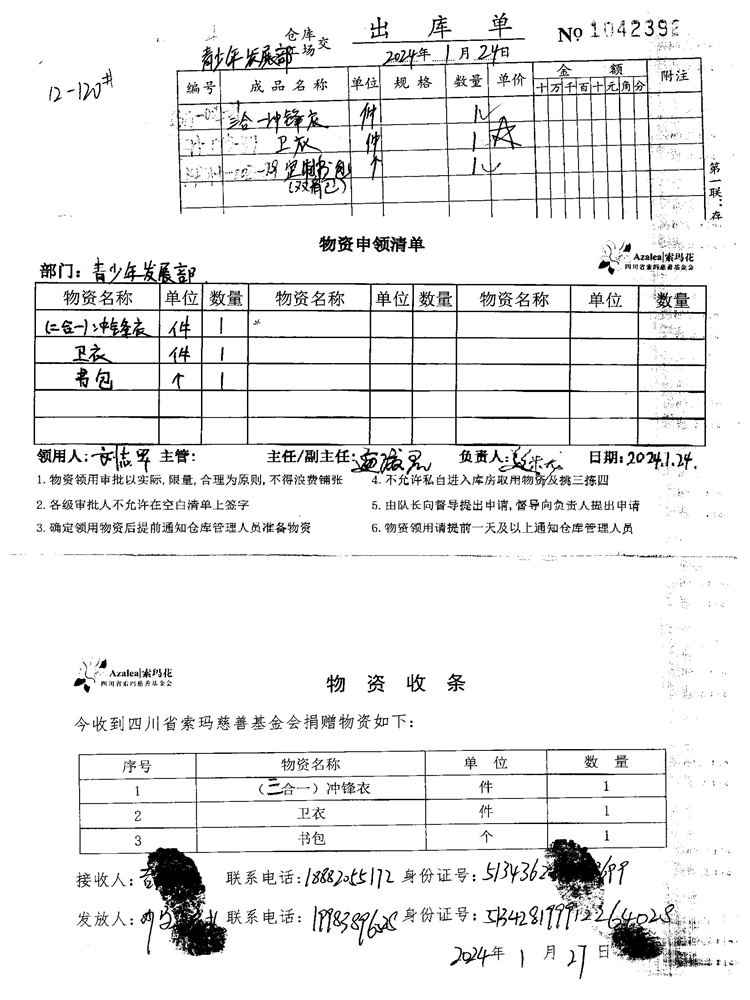 出库单
仓库
场交
青少年发展部
2024年1月24日
№ 1042392
12-120#
编号 成品名称 单位 规格 数量 单价 金额 附注
十万千百十元角分
三合一冲锋衣 件 1
卫衣 件 1
定制书包 个 1
(双肩包)
第一联:存
物资申领清单
Azalea|索玛花
四川省索玛慈善基金会
部门:青少年发展部
物资名称 单位 数量 物资名称 单位 数量 物资名称 单位 数量
(二合一)冲锋衣 件 1
卫衣 件 1
书包 个 1
领用人: 主管: 主任/副主任: 负责人: 日期:2024.1.24.
1.物资领用审批以实际,限量,合理为原则,不得浪费铺张 4.不允许私自进入库房取用物资及挑三拣四
2.各级审批人不允许在空白清单上签字 5.由队长向督导提出申请,督导向负责人提出申请
3.确定领用物资后提前通知仓库管理人员准备物资 6.物资领用请提前一天及以上通知仓库管理人员
Azalea|索玛花
四川省索玛慈善基金会
物资收条
今收到四川省索玛慈善基金会捐赠物资如下:
序号 物资名称 单位 数量
1 (三合一)冲锋衣 件 1
2 卫衣 件 1
3 书包 个 1
接收人: 联系电话:18882055172 身份证号:
发放人: 联系电话: 身份证号:
2024年1月27日